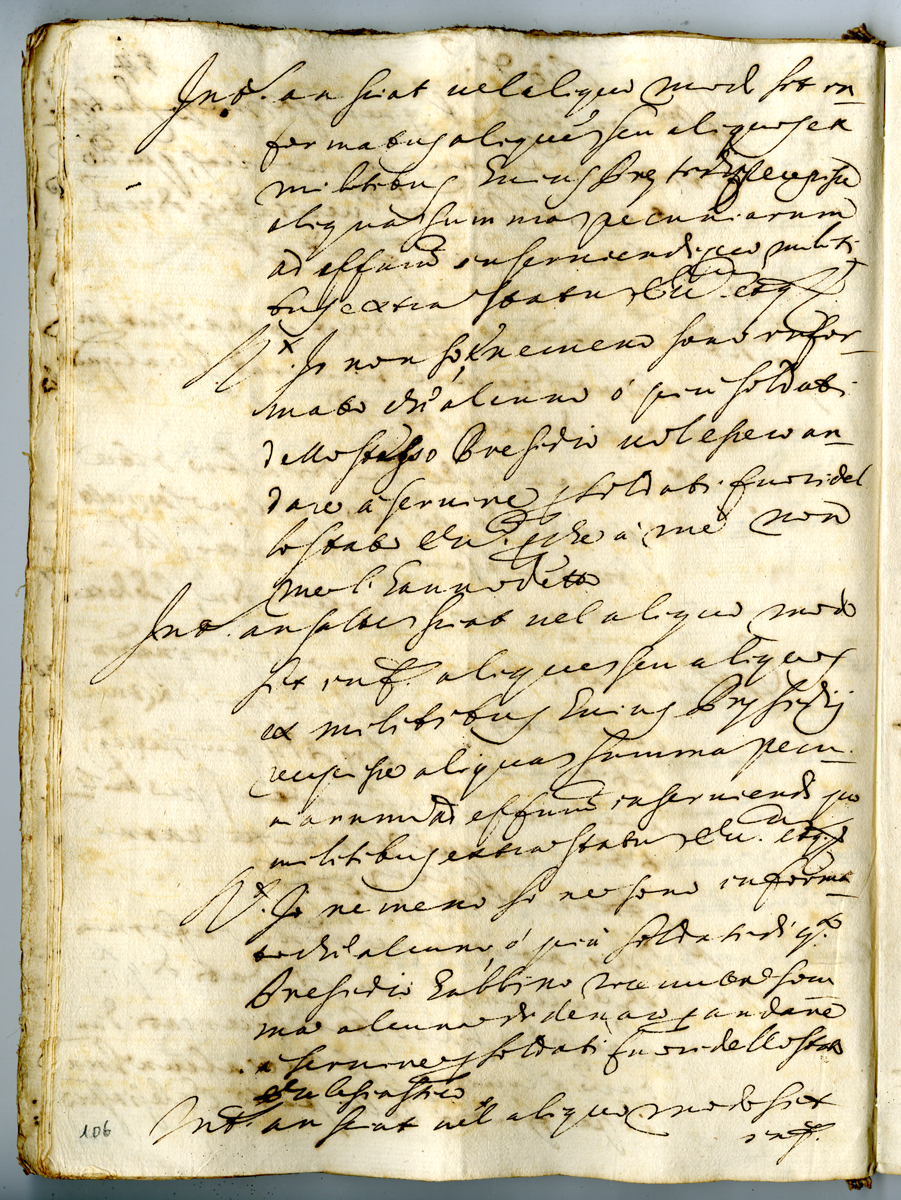 Int. an sciat vel aliquo modo sit in-
formatus aliquē seu aliquos ex
militibus huius Presidij recepisse
aliquas summas pecuniarum
ad effum inserviendi pro militi
bus extra statum Eccū. etc.
Rx. Io non so, ne meno sono infor-
mato ch'alcuno ó piu soldati
dello stesso Presidio volesse an-
dare à servire p soldati fuori del
lo stato Eccō. pche à me non
me l'hanno detto
Int. an saltem sciat vel aliquo modo
sit inf. aliquem seu aliquos
ex militibus huius Presidij
recepisse aliquas summas pecu-
niarum ad effum inserviendi pro
militibus extra statum Eccū. etc.
Rx. Io ne meno so ne sono informa-
to ch'alcuno, ó più soldati di qo.
Presidio habbino ricevute som
me alcune di denaro p andare
à servire p soldati fuori dello stato
Eclesiastico
Int. an sciat vel aliquo modo sit
inf.
106